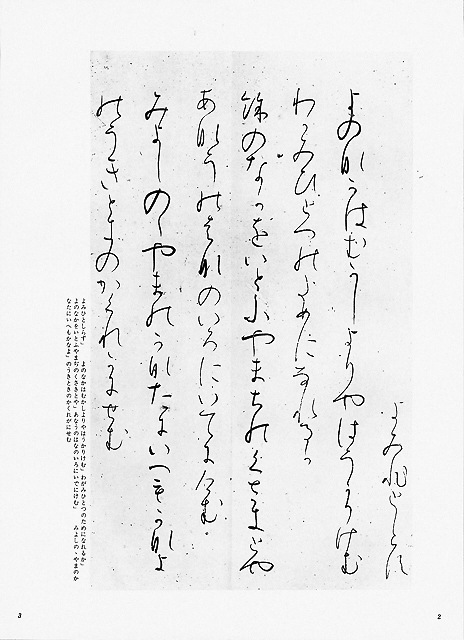 よみ悲としらす
よの那可はむ可しよりやはう可りけむ
わ可みひとつ能ためになれる可
餘のな可をいとふやまち能くさきとや
あ那う能者那のいろにいてにけむ
みよしのゝやま能可那たにいへも可那よ
能うきときのかくれ可にせむ
よみひとしらず　よのなかはむかしよりやはうかりけむ」わがみひとつのためになれるか」
よのなかをいとふやまぢのくさきとや」あなうのはなのいろにいでにけむ」　みよしのゝやまのか
なたにいへもかなよ」のうきときのかくれがにせむ
2
3